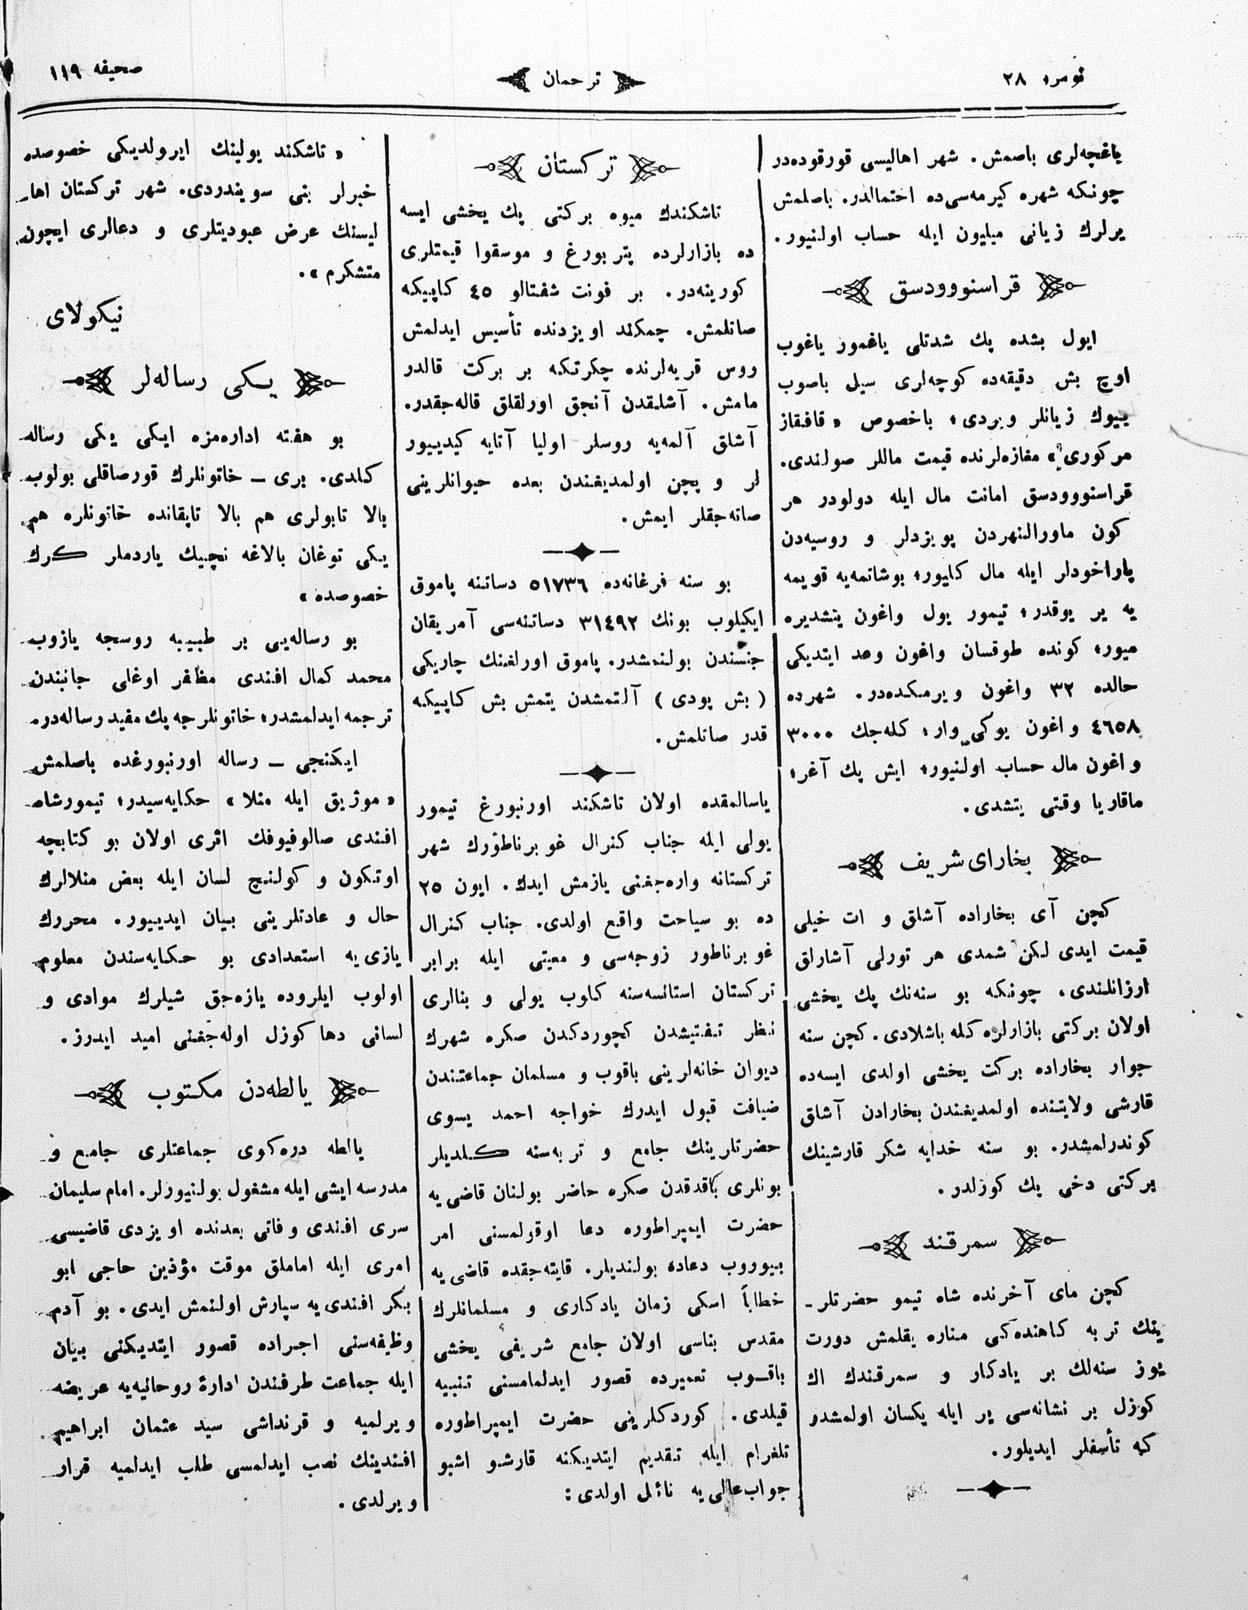 نومرو ٢٨
ترجمان
صحيفه ١١٩
باغچه‌لری باصمش. شهر اهاليسی قورقوده‌در
چونكه شهره كيرمه‌سی‌ده احتمالدر. باصلمش
يرلرك زيانی ميليون ايله حساب اولنيور.
قراسنووودسق
ايول بشده پك شدتلی ياغمور ياغوب
اوچ بش دقيقه‌ده كوچه‌لری سيل باصوب
بيوك زيانلر ويردی؛ باخصوص «قافقاز
مركوری» مغازه‌لرنده قيمت ماللر صولندی.
قراسنووودسق امانت مال ايله دولودر هر
كون ماورالنهردن پويزدلر و روسيه‌دن
پاراخودلر ايله مال كليور؛ بوشاتمه‌يه قويمه
يه ير يوقدر؛ تيمور يول واغون يتشديره
ميور؛ كونده طوقسان واغون وعد ايتديكی
حالده ٣٢ واغون ويرمكده‌در. شهرده
٤٦٥٨ واغون يوكی وار؛ كله‌جك ٣٠٠٠
واغون مال حساب اولنيور؛ ايش پك آغر؛
ماقاريا وقتی يتشدی.
بخارای شريف
كچن آی بخاراده آشلق و ات خيلی
قيمت ايدی لكن شمدی هر تورلی آشاراق
ارزانلندی، چونكه بو سنه‌نك پك يخشی
اولان بركتی بازارلره كله باشلادی. كچن سنه
جوار بخاراده بركت يخشی اولدی ايسه‌ده
قارشی ولايتنده اولمديغندن بخارادن آشاق
كوندرلمشدر. بو سنه خدايه شكر قارشينك
بركتی دخی پك كوزلدر.
سمرقند
كچن مای آخرنده شاه تيمو حضرتلر-
ينك تربه كاهنده‌كی مناره يقلمش دورت
يوز سنه‌لك بر يادكار و سمرقندك اك
كوزل بر نشانه‌سی ير ايله يكسان اولمشدر
كه تأسفلر ايديلور.
تركستان
تاشكندك ميوه بركتی پك يخشی ايسه
ده بازارلرده پتربورغ و موسقوا قيمتلری
كورينه‌در. بر فونت شفتالو ٤٥ كاپيكه
صاتلمش. چمكند اويزدنده تأسيس ايدلمش
روس قريه‌لرنده چكرتكه بر بركت قالدر
مامش. آشلقدن آنجق اورلقلق قاله‌جقدر.
آشلق آلمه‌يه روسلر اوليا آتايه كيدييور
لر و پچن اولمديغندن بعده حيوانلرينی
صاته‌جقلر ايمش.
بو سنه فرغانه‌ده ٥١٧٣٦ دساتنه پاموق
ايكيلوب بونك ٣١٤٩٢ دساتنه‌سی آمريقان
جنسندن بولنمشدر. پاموق اورلغنك چاريكی
(بش پودی) آلتمشدن يتمش بش كاپيكه
قدر صاتلمش.
ياسالمقده اولان تاشكند اورنبورغ تيمور
يولی ايله جناب كنرال غوبرناطورك شهر
تركستانه واره‌جغنی يازمش ايدك. ايون ٢٥
ده بو سياحت واقع اولدی. جناب كنرال
غوبرناطور زوجه‌سی و معيتی ايله برابر
تركستان استانسه‌سنه كلوب يولی و بنالری
نظر تفتيشدن كچوردكدن صكره شهرك
ديوان خانه‌لرينی باقوب و مسلمان جماعتندن
ضيافت قبول ايدرك خواجه احمد يسوی
حضرتلرينك جامع و تربه‌سنه كلديلر
بونلری باقدقدن صكره حاضر بولنان قاضی‌يه
حضرت ايمپراطوره دعا اوقولمسنی امر
بيوروب دعاده بولنديلر. قايته‌جقده قاضی‌يه
خطاباً اسكی زمان يادكاری و مسلمانلرك
مقدس بناسی اولان جامع شريفی يخشی
باقوب تعميرده قصور ايدلمامسنی تنبيه
قيلدی. كوردكلرينی حضرت ايمپراطوره
تلغرام ايله تقديم ايتديكنه قارشو اشبو
جواب‌عالی‌يه نائل اولدی:
«تاشكند يولينك ايرولديكی خصوصده
خبرلر بنی سويندردی. شهر تركستان اها-
ليسنك عرض عبوديتلری و دعالری ايچون
متشكرم».
نيكولای
يكی رساله‌لر
بو هفته اداره‌مزه ايكی يكی رساله
كلدی. بری – خاتونلرك قورصاقلی بولوب
بالا تابولری هم بالا تاپقانده خاتونلره هم
يكی توغان بالاغه نچيك ياردملر كرك
خصوصده»
بو رساله‌يی بر طبيبه روسجه يازوب
محمد كمال افندی مظفر اوغلی جانبندن
ترجمه ايدلمشدر؛ خاتونلرجه پك مفيد رساله‌در.
ايكنجی – رساله اورنبورغده باصلمش
«موژيق ايله منلا» حكايه‌سيدر؛ تيمورشاه
افندی صالوفيوفك اثری اولان بو كتابچه
اوتكون و كولنچ لسان ايله بعض منلالرك
حال و عادتلرينی بيان ايدييور. محررك
يازی‌يه استعدادی بو حكايه‌سندن معلوم
اولوب ايلروده يازه‌جق شيلرك موادی و
لسانی دها كوزل اوله‌جغنی اميد ايدرز.
يالطه‌دن مكتوب
يالطه دره‌كوی جماعتلری جامع و
مدرسه ايشی ايله مشغول بولنيوزلر. امام سليمان
سری افندی وفاتی بعدنده اويزدی قاضيسی
امری ايله اماملق موقت مؤذين حاجی ابو
بكر افندی‌يه سپارش اولنمش ايدی. بو آدم
وظيفه‌سنی اجراده قصور ايتديكنی بيان
ايله جماعت طرفندن ادارۀ روحانيه‌يه عريضه
ويرلميه و قرنداشی سيد عثمان ابراهيم
افندينك نصب ايدلمسی طلب ايدلميه قرار
ويرلدی.